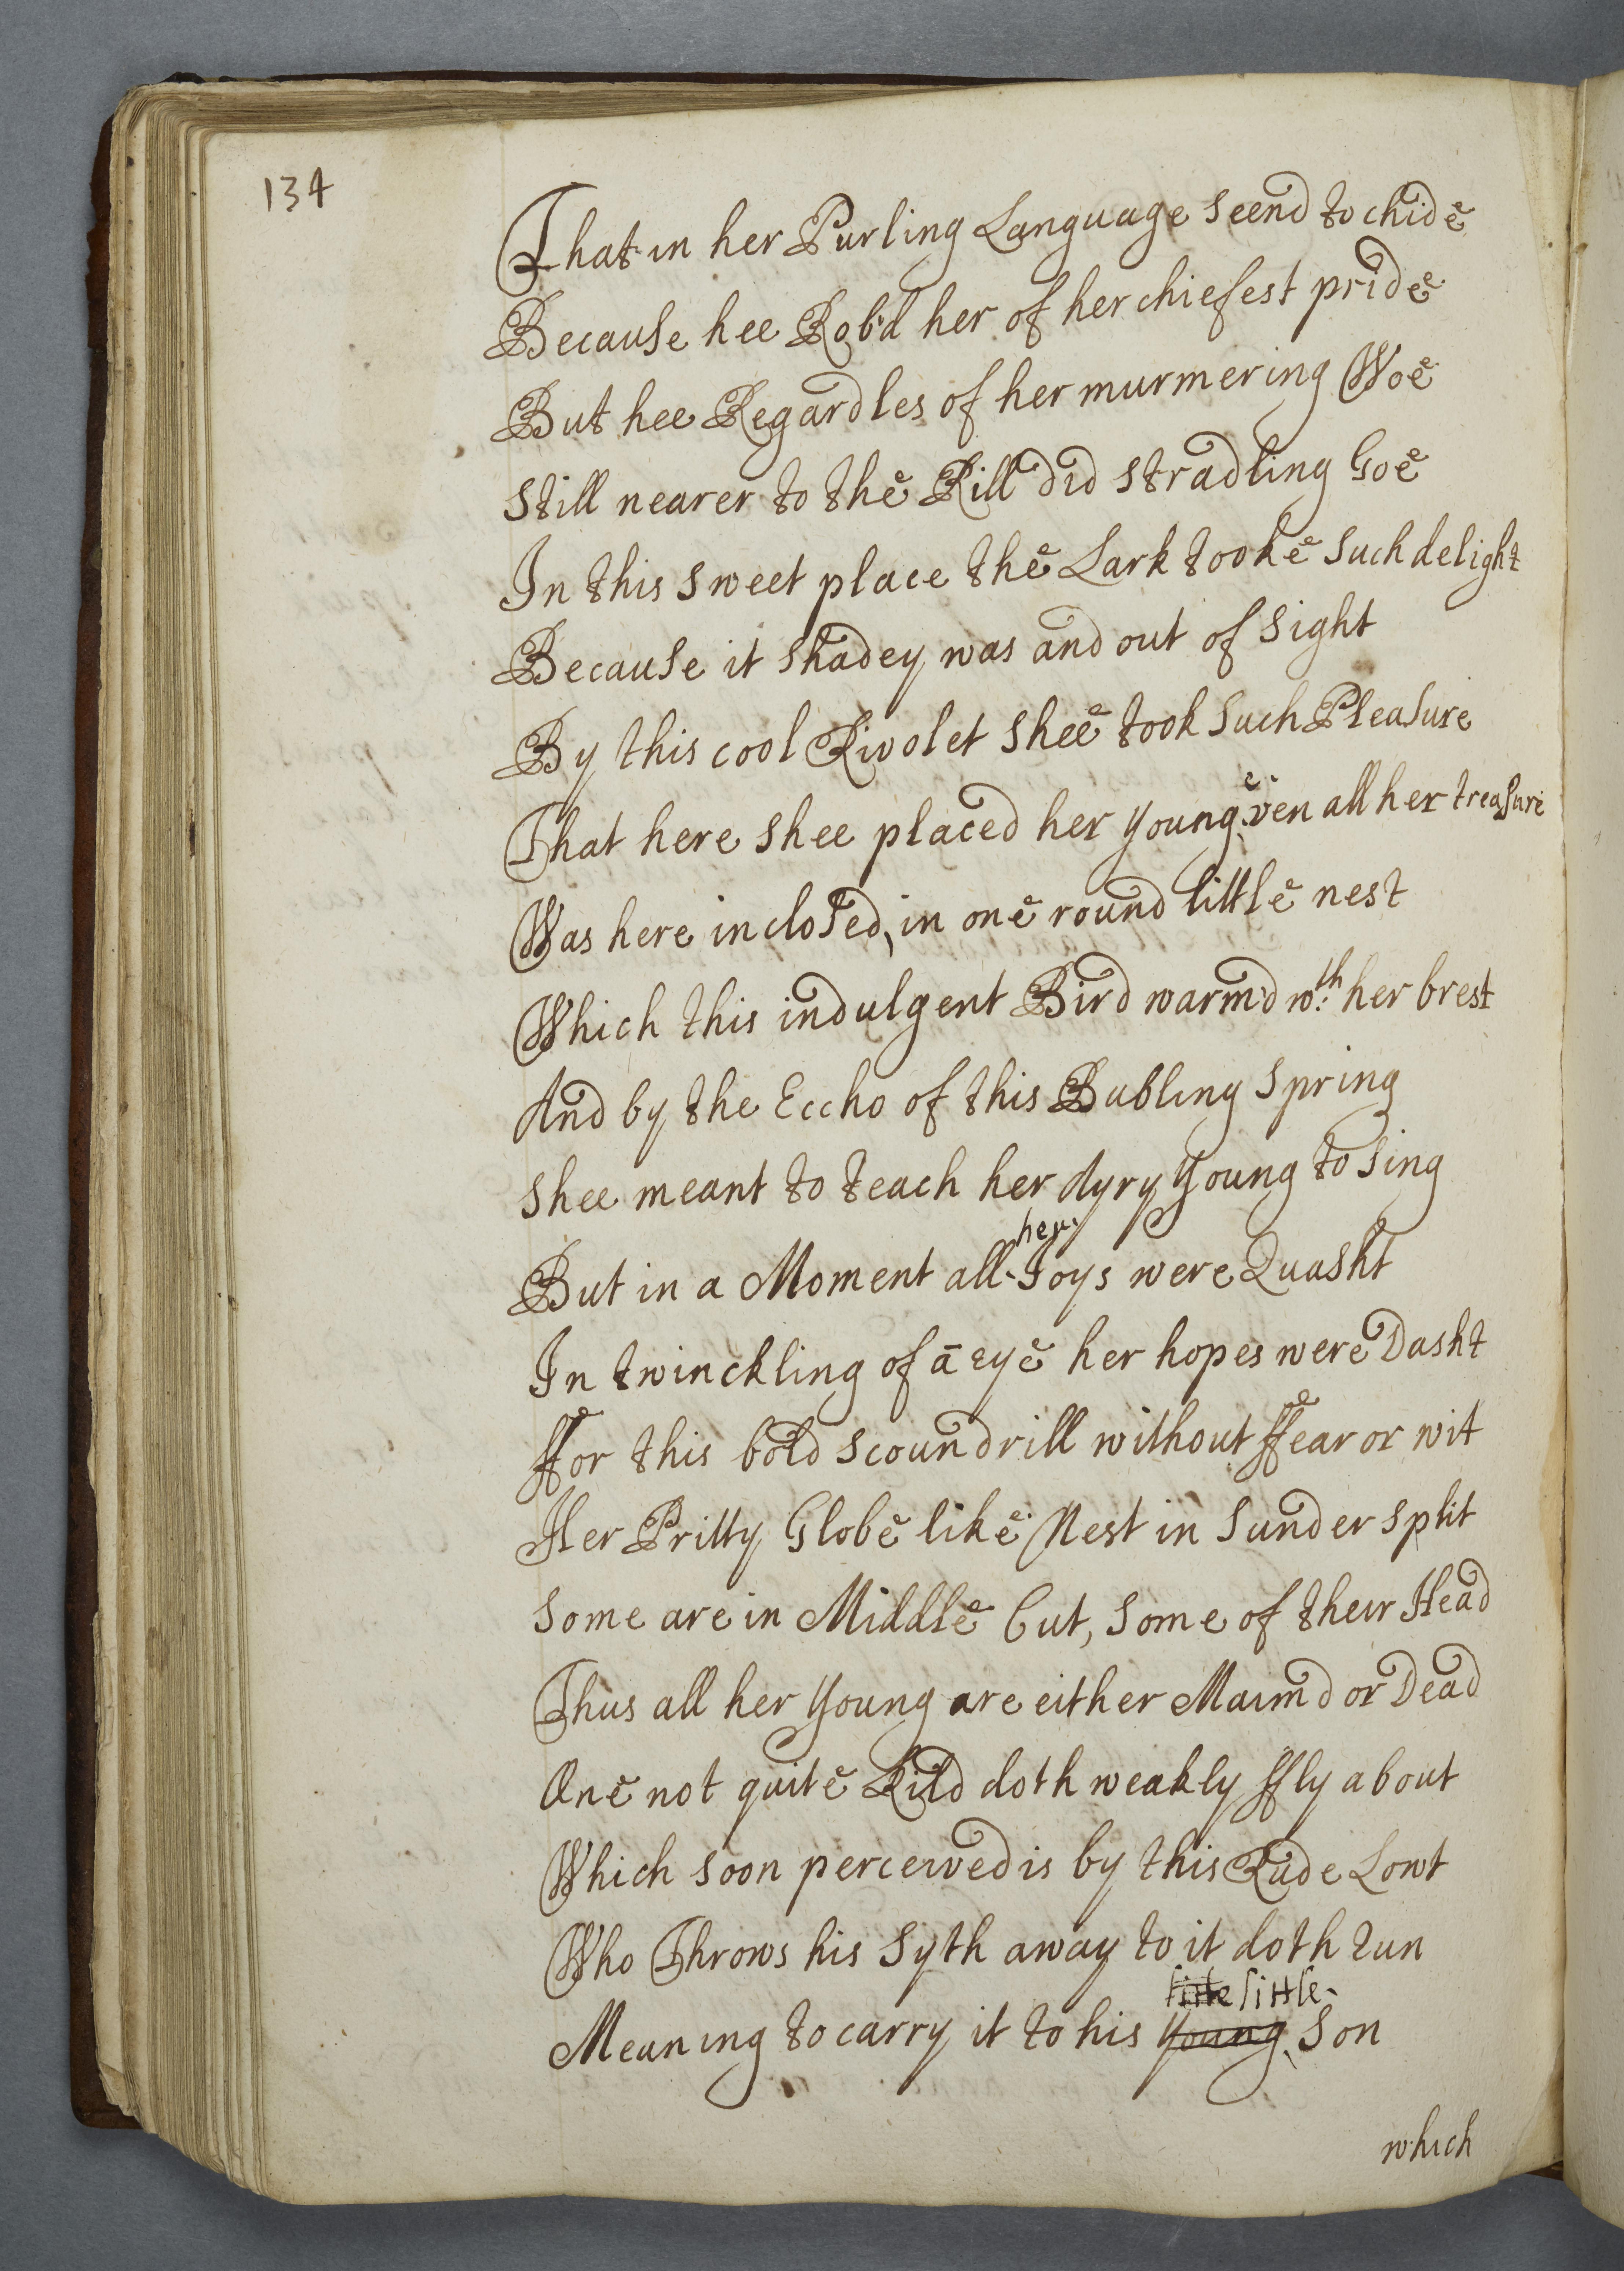 134
That in her Purling Language seend to chide
Because hee Rob'd her of her chiefest pride
But hee Regardles of her murmering Woe
Still nearer to the Rill did stradling Goe
In this sweet place the Lark tooke such delight
Because it shadey was and out of sight
By this cool Rivolet shee took such Pleasure
That here shee placed her Young e'ven all her treasure
Was here inclosed, in one round little nest
Which this indulgent Bird warm'd wth: her brest
And by the Eccho of this Bubling Spring
Shee meant to teach her Ayry Young to sing
her
But in a Moment all Joys were Quasht
In twinckling of a eye her hopes were Dasht
ffor this bold scoundrill without ffear or wit
Her Pritty Globe like Nest in sunder split
Some are in Middle Cut, some of their Head
Thus all her Young are either Maim'd or Dead
One not quite Kild doth weakly ffly about
Which soon perceived is by this Rude Lowt
Who Throws his Syth away to it doth run
little little
Meaning to carry it to his Young Son
which